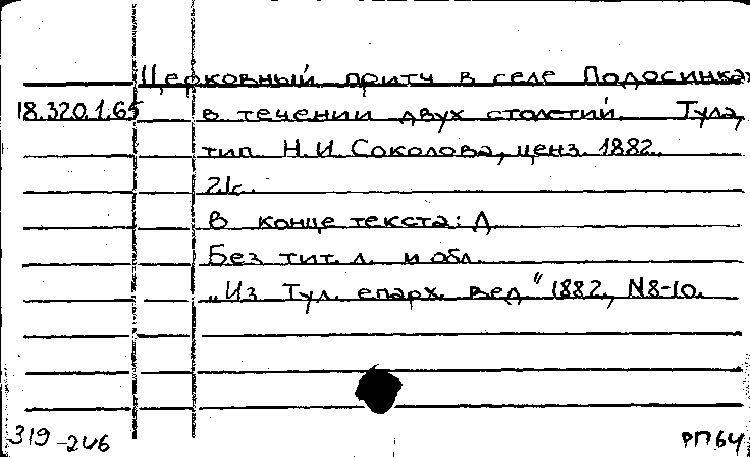 Церковный притч в селе Подосинках
18.320.1.65 в течении двух столетий. Тула,
тип. Н.И. Соколова, ценз. 1882.
21с.
В конце текста: Д
Без тит. л. и обл.
„Из Тул. епарх. вед“ 1882, N8-10.
319-246 РП64